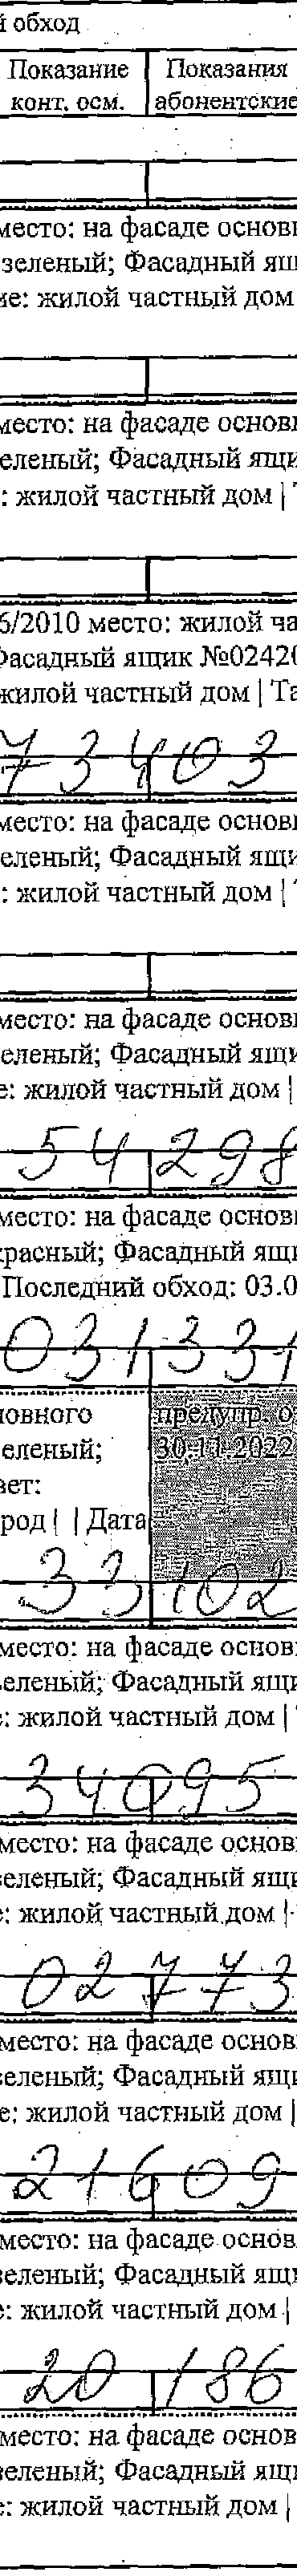 й обход
Показание Показания
конт. осм. абонентские
место: на фасаде основн
зеленый; Фасадный ящ
ие: жилой частный дом
место: на фасаде основн
еленый; Фасадный ящи
: жилой частный дом |
6/2010 место: жилой ча
Фасадный ящик №02420
жилой частный дом | Та
73403
место: на фасаде основн
еленый; Фасадный ящи
: жилой частный дом |
место: на фасаде основн
еленый; Фасадный ящи
е: жилой частный дом |
54298
место: на фасаде основн
красный; Фасадный ящи
Последний обход: 03.0
031331
новного предупр о
еленый; 30.11.2022
вет:
род | | Дата
33102
место: на фасаде основн
еленый; Фасадный ящи
: жилой частный дом |
34095
место: на фасаде основн
еленый; Фасадный ящи
е: жилой частный дом |
02773
место: на фасаде основн
зеленый; Фасадный ящи
е: жилой частный дом |
21609
место: на фасаде основ
зеленый; Фасадный ящи
е: жилой частный дом |
20186
место: на фасаде основ
зеленый; Фасадный ящи
е: жилой частный дом |